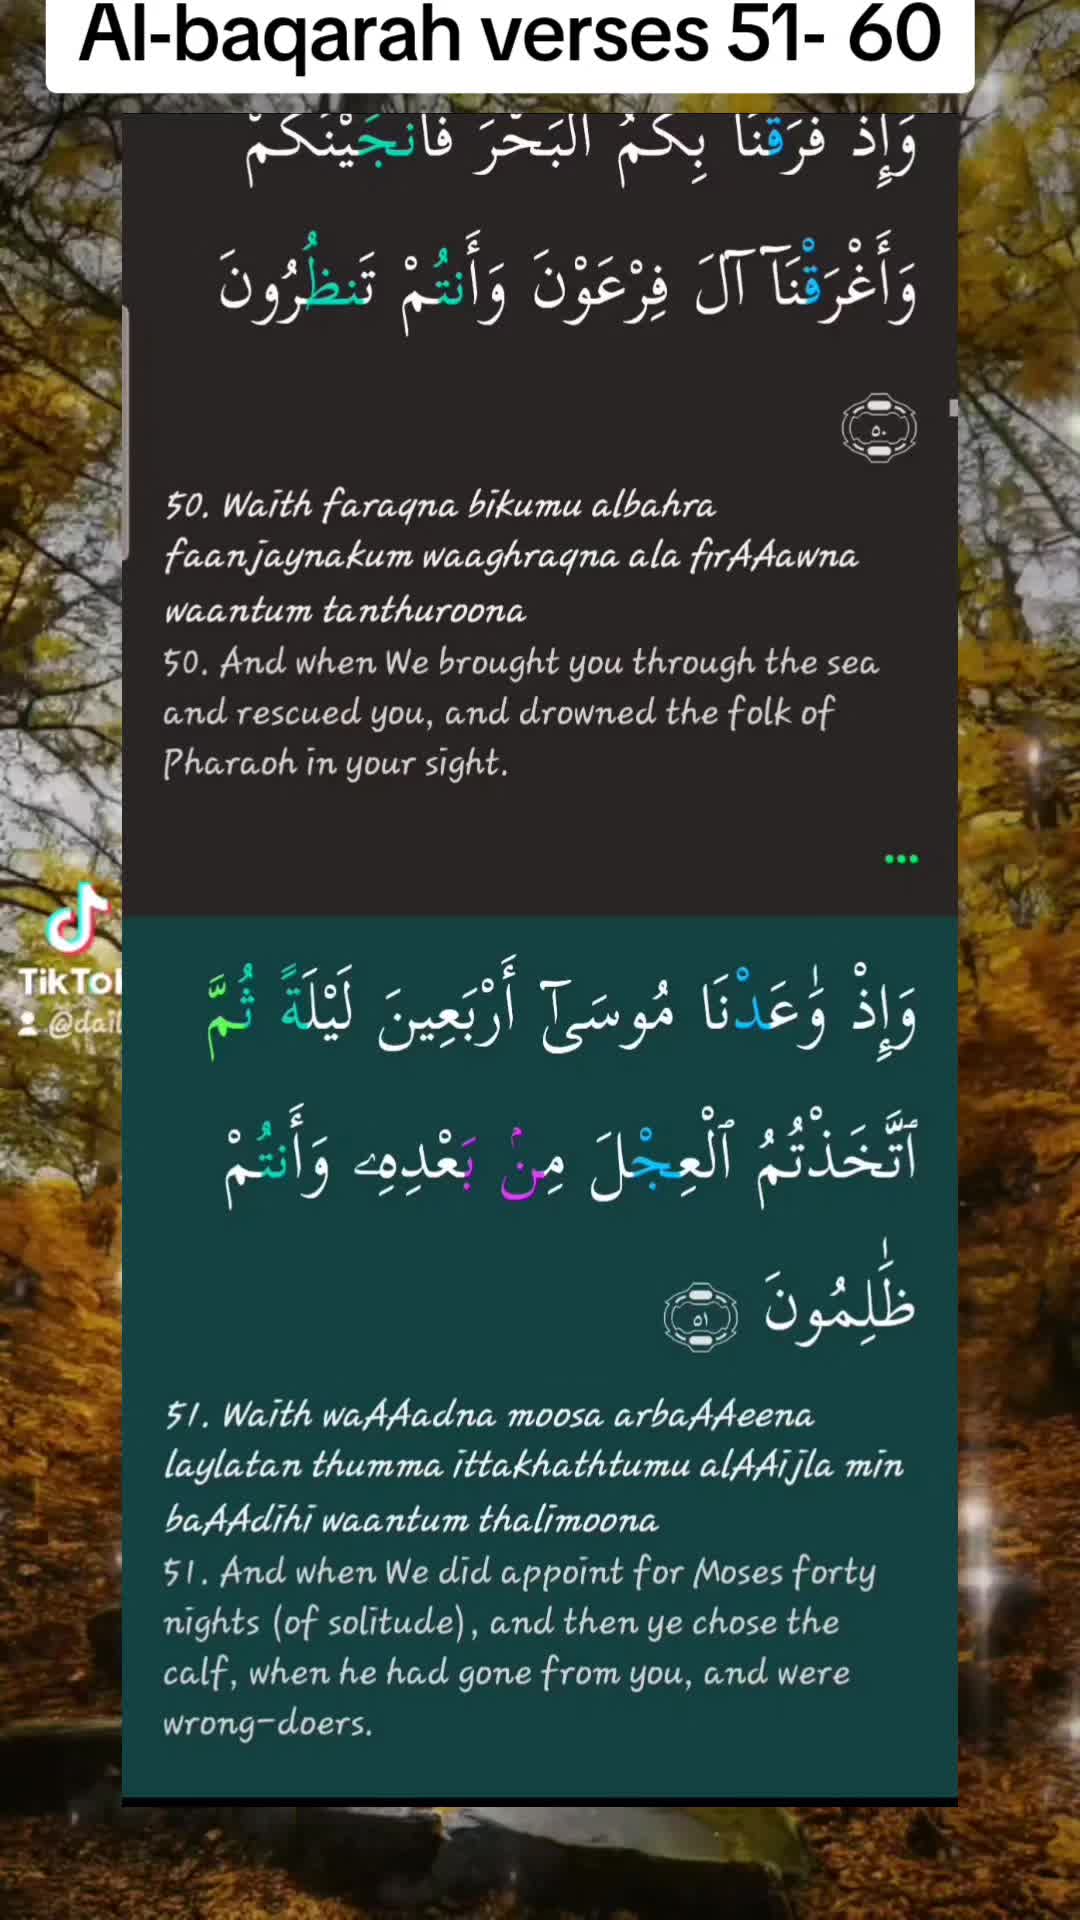 Al-baqarah verses 51- 60
وَإِذْ فَرَقْنَا بِكُمُ الْبَحْرَ فَأَنجَيْنَٰكُمْ
وَأَغْرَقْنَآ آلَ فِرْعَوْنَ وَأَنتُمْ تَنظُرُونَ
٥٠
50. Waith faraqna bikumu albahra
faanjaynakum waaghraqna ala firAAawna
waantum tanthuroona
50. And when We brought you through the sea
and rescued you, and drowned the folk of
Pharaoh in your sight.
وَإِذْ وَٰعَدْنَا مُوسَىٰٓ أَرْبَعِينَ لَيْلَةً ثُمَّ
ٱتَّخَذْتُمُ ٱلْعِجْلَ مِنۢ بَعْدِهِۦ وَأَنتُمْ
ظَٰلِمُونَ ٥١
51. Waith waAAadna moosa arbaAAeena
laylatan thumma ittakhathtumu alAAijla min
baAAdihi waantum thalimoona
51. And when We did appoint for Moses forty
nights (of solitude), and then ye chose the
calf, when he had gone from you, and were
wrong-doers.
TikTok
@dail